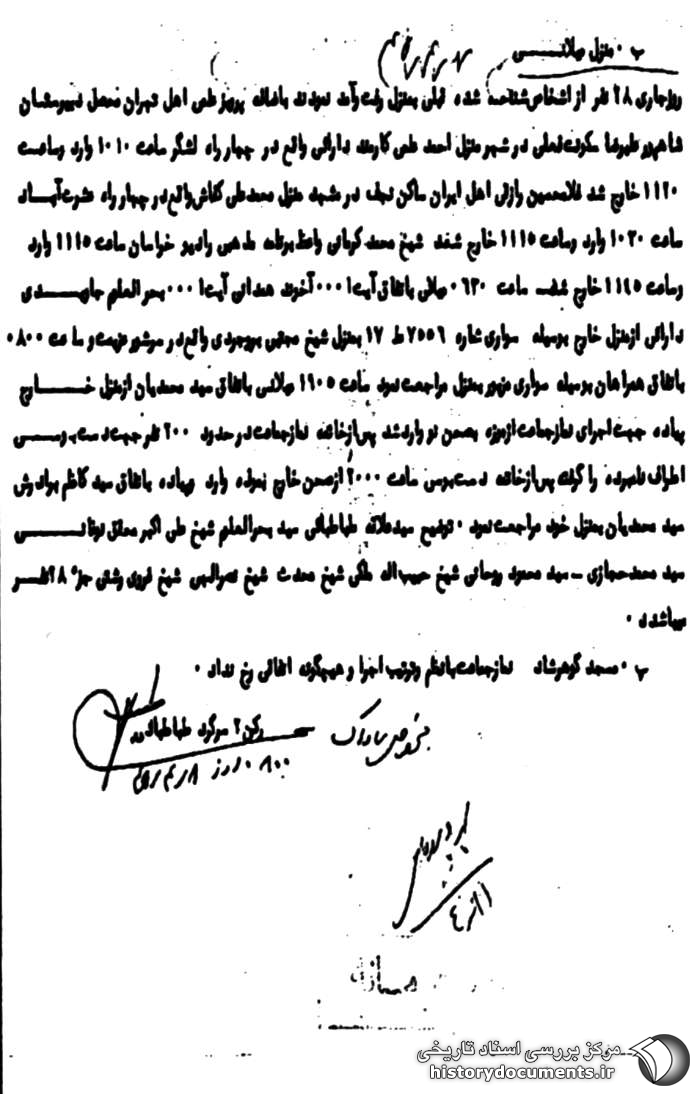 ب ۰ منزل میلانــــی
روزجاری ۲۸ نفر از اشخاص شناخته شده قبلی بمنزل رفت وآمد نمودند باضافه پرویز علمی اهل تهران محصل دبیرستان
شاهپور علیرضا سکونت فعلی در شهر منزل احمد علمی کارمند دارائی واقع در چهار راه لشگر ساعت ۱۰۱۰ وارد وساعت
۱۱۲۰ خارج شد غلامحسین رازقی اهل ایران ساکن نجف در مشهد منزل محمدعلی کفاش واقع در چهار راه عشرت آبــاد
ساعت ۱۰۳۰ وارد وساعت ۱۱۱۵ خارج شدند شیخ محمد کرمانی واعظ برنامه مذهبی رادیو خراسان ساعت ۱۱۱۵ وارد
وساعت ۱۱۴۵ خارج شدند ساعت ۰۶۳۰ میلانی باتفاق آیت ا۰۰۰ آخوند همدانی آیت ا۰۰۰ بحرالعلوم
دارائی ازمنزل خارج بوسیله سواری شماره ۷۵۵۶ ط ۱۷ بمنزل شیخ مجتبی بروجردی واقع در سرشور عزیمت و ساعت ۰۸۰۰
باتفاق همراهان بوسیله سواری مزبور بمنزل مراجعت نمود ساعت ۱۹۰۵ میلانی باتفاق سید محمدیان ازمنزل خـــارج
پیاده جهت اجرای نمازجماعت ازموزه بصحن نو وارد شد پس ازخاتمه نمازجماعت در حدود ۲۰۰ نفر جهت دست بوســی
اطراف نامبرده را گرفته پس ازخاتمه دست بوسی ساعت ۲۰۰۰ ازصحن خارج پیاده باتفاق سید کاظم برادرش
سید محمدیان بمنزل خود مراجعت نمود ۰ توضیح سیدعلامه طباطبائی سید بحرالعلوم شیخ علی اکبر
سید محمد حجازی ــ سید محمود روحانی شیخ حبیب اله ملکی شیخ محدث شیخ نصرالهی شیخ غروی رشتی جزء ۲۸ نفــر
میباشند ۰
پ ۰ مسجد گوهرشاد نمازجماعت بانظم وترتیب اجرا و هیچگونه اتفاقی رخ نداد ۰
رکن ۲ سرگرد طباطبائی
ساواک
۰۸۰۰ روز
مرکز بررسی اسناد تاریخی
historydocuments.ir